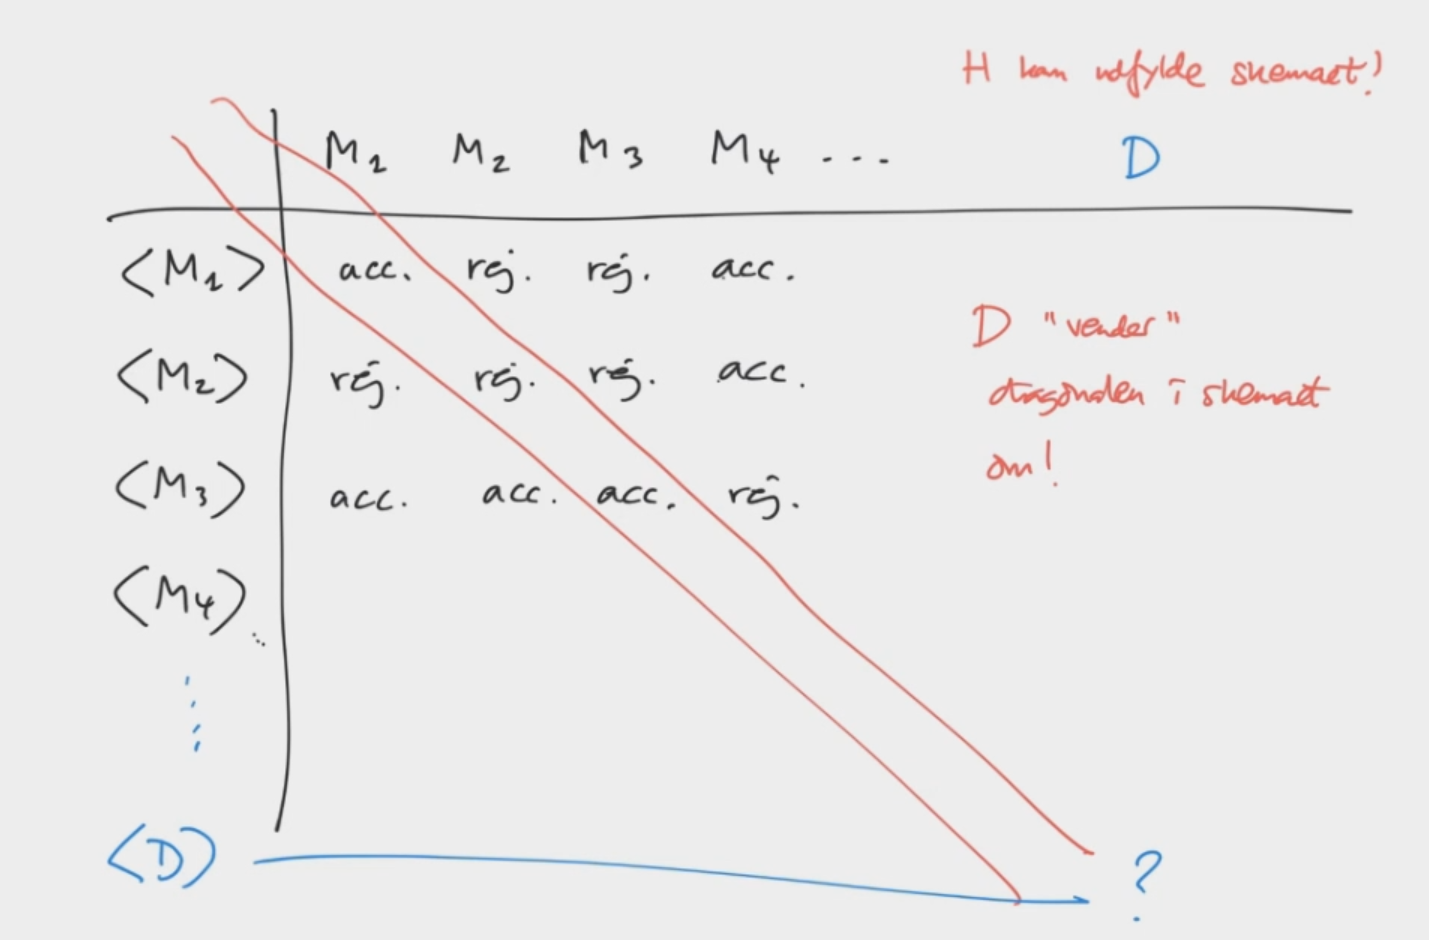 H kan udfylde skemaet!
M1 M2 M3 M4 ... D
<M1> acc. rej. rej. acc.
<M2> rej. rej. rej. acc.
<M3> acc. acc. acc. rej.
<M4>
<D> ?
D "vender"
diagonalen i skemaet
om!